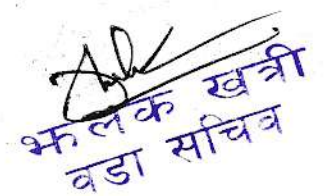 झलक खत्री
वडा सचिव